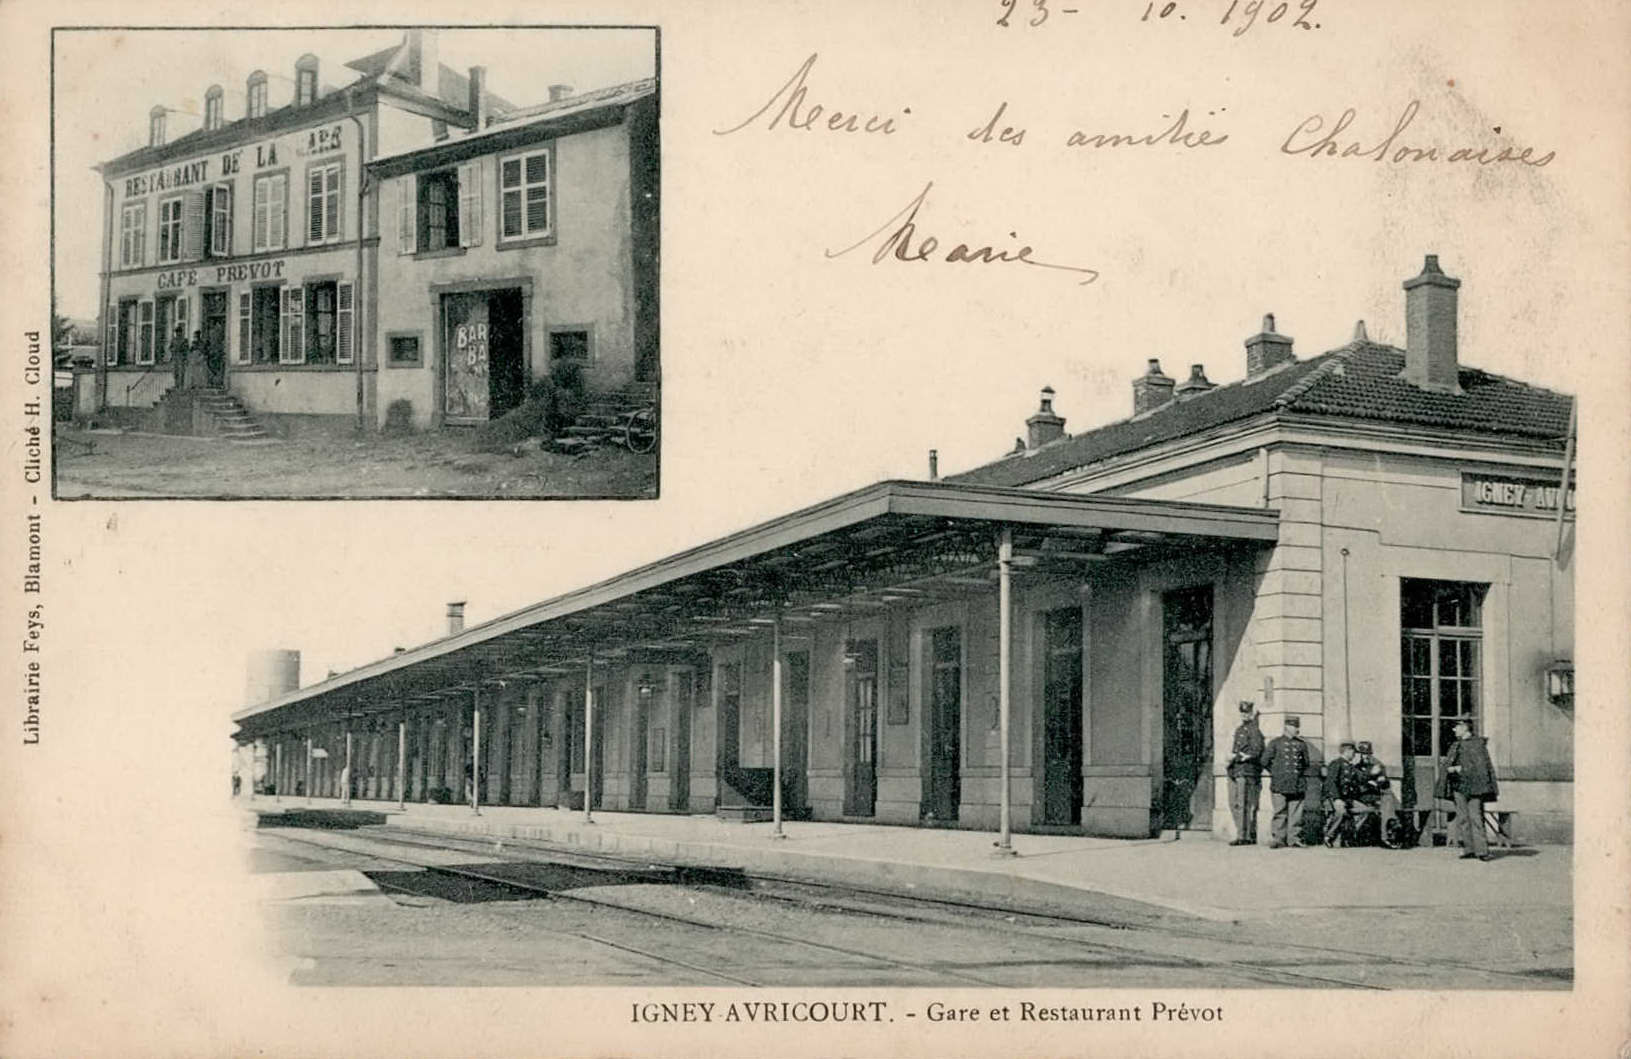 23 - 10. 1902.
Merci des amitiés Chalonaises
Marie
RESTAURANT DE LA GARE
CAFÉ PREVOT
BAR
BA
IGNEY-AVRIC
Librairie Feys, Blamont - Cliché H. Cloud
IGNEY-AVRICOURT. - Gare et Restaurant Prévot